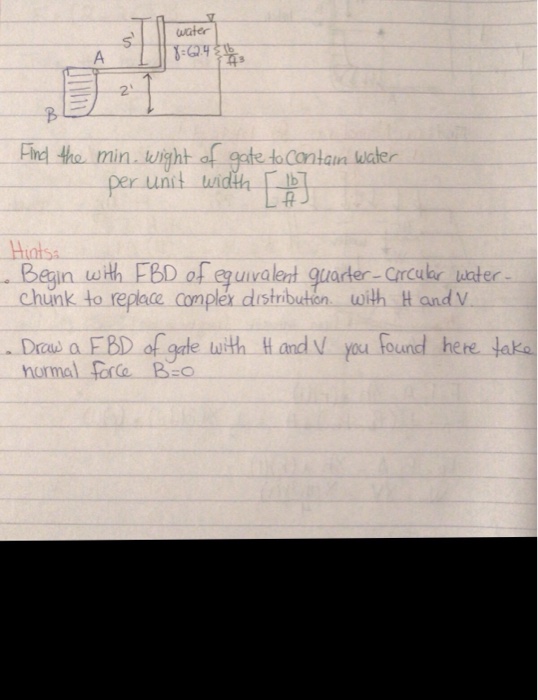 water
5'
γ=62.4 lb/ft³
A
2'
B
Find the min. wight of gate to contain water
per unit width [lb/ft]
Hints:
. Begin with FBD of equivalent quarter-circular water-
chunk to replace complex distribution with H and V.
. Draw a FBD of gate with H and V you found here take
normal force B=0